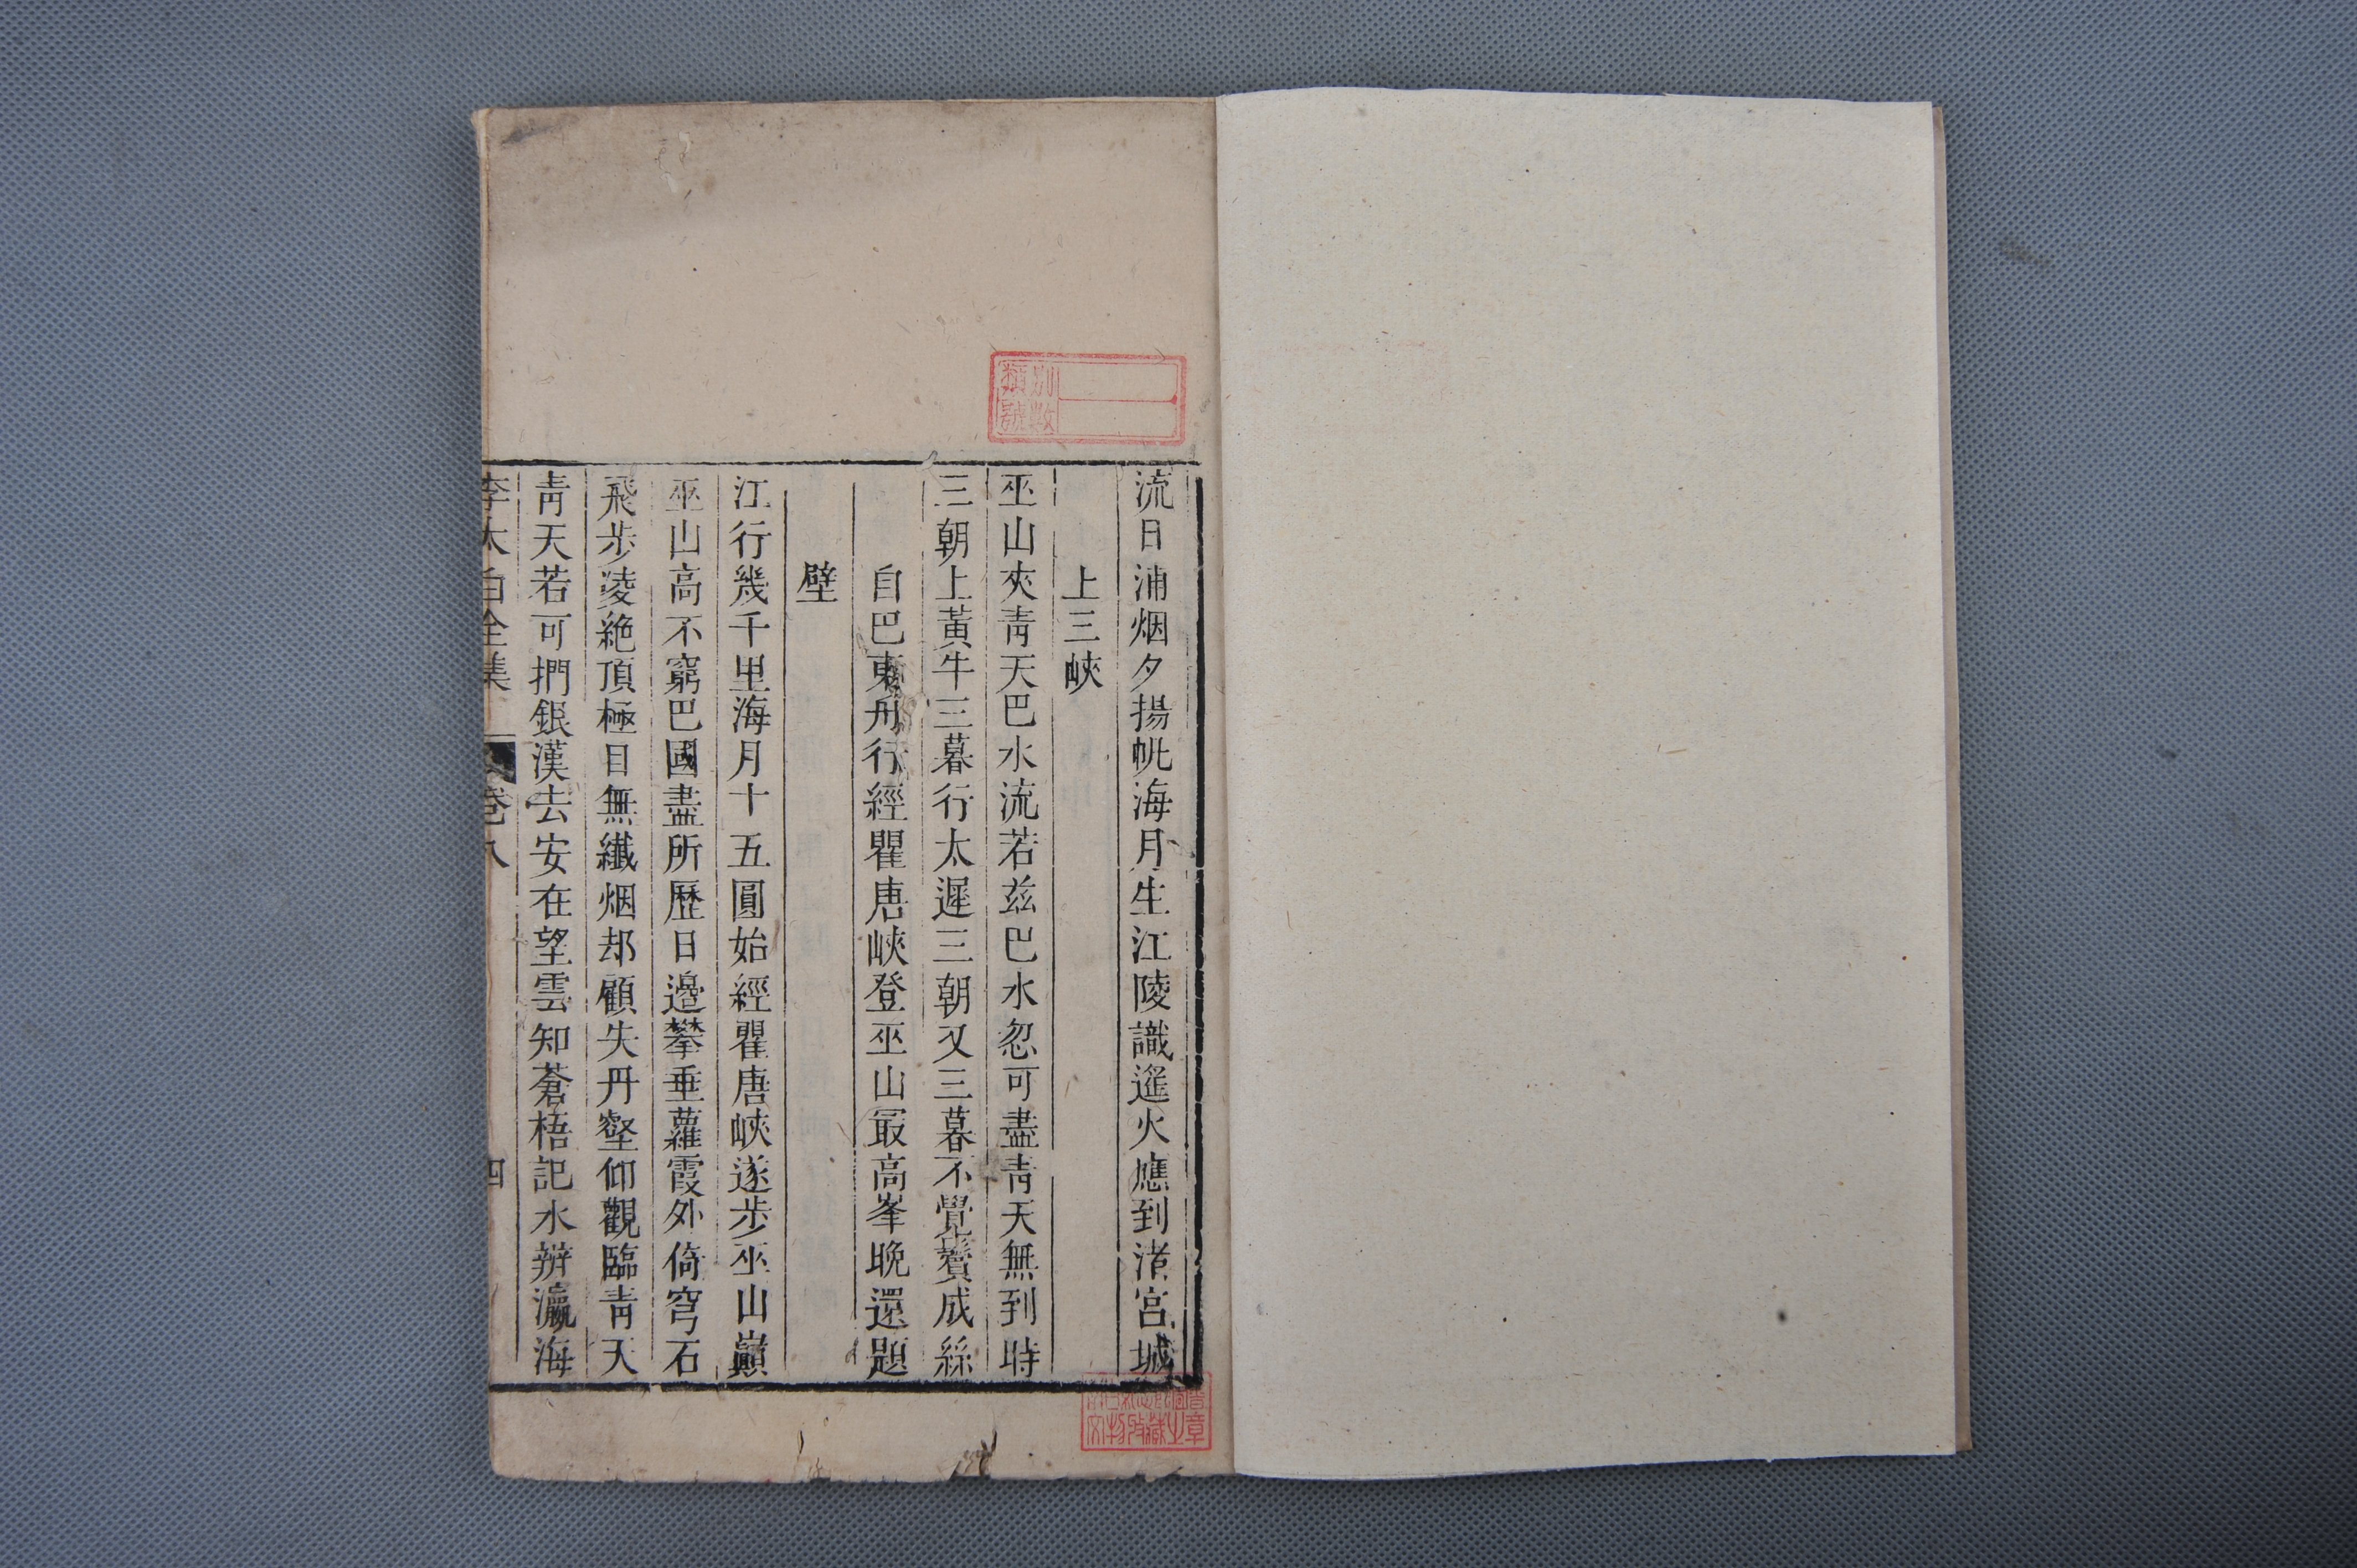 流日浦烟夕揚帆海月生江陵識遥火應到渚宮城
上三峽
巫山夾靑天巴水流若兹巴水忽可盡靑天無到時
三朝上黃牛三暮行太遲三朝又三暮不覺鬢成絲
自巴東舟行經瞿唐峽登巫山最高峯晚還題
壁
江行幾千里海月十五圓始經瞿唐峽遂步巫山巔
巫山高不窮巴國盡所歷日邊攀垂蘿霞外倚穹石
飛步凌絶頂極目無纖烟却顧失丹壑仰觀臨靑天
靑天若可捫銀漢去安在望雲知蒼梧記水辨瀛海
李太白全集
卷八
四
別數
類號